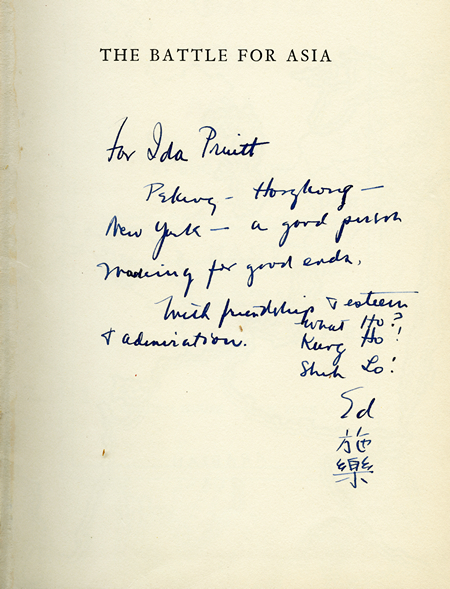 THE BATTLE FOR ASIA
For Ida Pruitt
Peking – Hongkong –
New York – a good person
working for good ends.
With friendship & esteem
& admiration.
What Ho?
Kung Ho!
Shih Lo!
Ed
施
樂